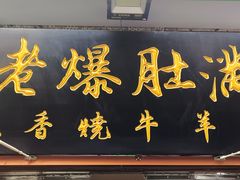 老爆肚满
香燒牛羊